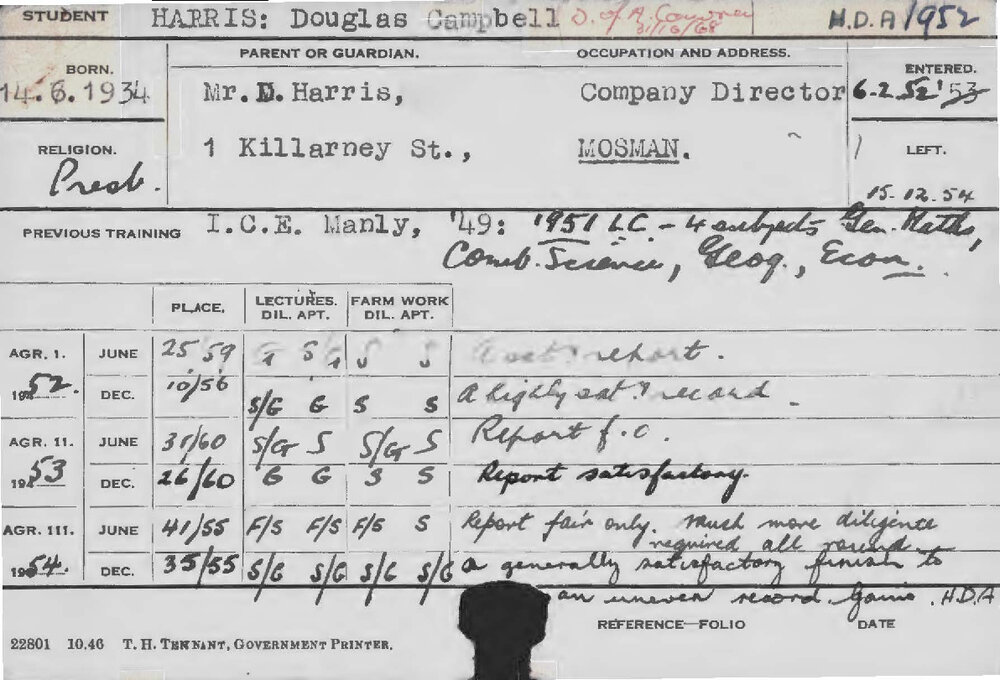 STUDENT HARRIS: Douglas Campbell D. of A. Cowra 31/10/68 H.D.A 1952
BORN. PARENT OR GUARDIAN. OCCUPATION AND ADDRESS. ENTERED.
14.6.1934 Mr. D. Harris, Company Director 6-2.52' 53
RELIGION. 1 Killarney St., MOSMAN. LEFT.
Presb. 15.12.54
PREVIOUS TRAINING I.C.E. Manly, '49: 1951 LC. - 4 subjects Gen. Maths,
Comb. Science, Geog., Econ.
PLACE. LECTURES. FARM WORK
DIL. APT. DIL. APT.
AGR. 1. JUNE 25 59 S S S A sat. report.
1952. DEC. 10/56 S/G G S S A highly sat. record.
AGR. 11. JUNE 31/60 S/G S S/G S Report f.c.
1953 DEC. 26/60 G G S S Report satisfactory.
AGR. 111. JUNE 41/55 F/S F/S F/S S Report fair only. Much more diligence
required all round.
1954. DEC. 35/55 S/G S/G S/G S/G a generally satisfactory finish to
an uneven record. Gains H.D.A
REFERENCE-FOLIO DATE
22801 10.46 T. H. TENNANT, GOVERNMENT PRINTER.